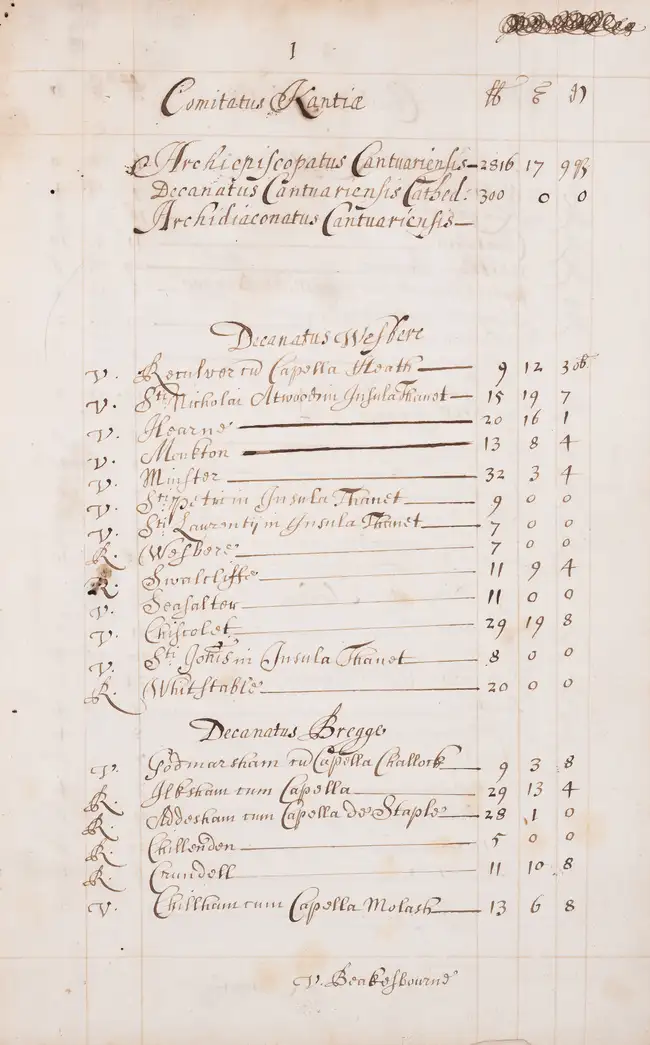 1
Comitatus Kantiæ lb s D
Archiepiscopatus Cantuariensis 2816 17 9 qr
Decanatus Cantuariensis Cathed: 300 0 0
Archidiaconatus Cantuariensis
Decanatus Wesbere
V. Reculver cū Capella Heath 9 12 3 ob
V. Sti Nicholai Atwood in Insula Thanet 15 19 7
V. Hearne 20 16 1
V. Monkton 13 8 4
V. Minster 32 3 4
V. Sti Petri in Insula Thanet 9 0 0
V. Sti Laurentij in Insula Thanet 7 0 0
R. Wesbere 7 0 0
R. Swalcliffe 11 9 4
V. Seasalter 11 0 0
V. Chiscolet 29 19 8
V. Sti Johis in Insula Thanet 8 0 0
R. Whitstable 20 0 0
Decanatus Bregge
V. Godmarsham cū Capella Challock 9 3 8
R. Ilksham cum Capella 29 13 4
R. Addesham cum Capella de Staple 28 1 0
R. Chillenden 5 0 0
R. Crundell 11 10 8
V. Chillham cum Capella Molash 13 6 8
V. Beakesbourne